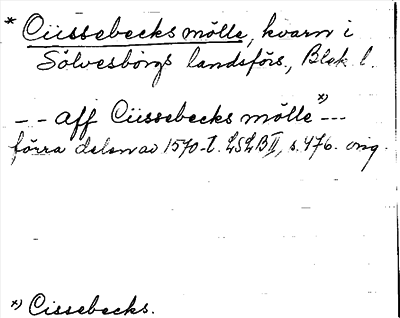 * Ciissebecks mölle, kvarn i
Sölvesborgs landsförs., Blek. l.
-- aff Ciissebecks mölle *) --
förra delen av 1570-t. LSLB II, s. 476. orig.
*) Cissebecks.